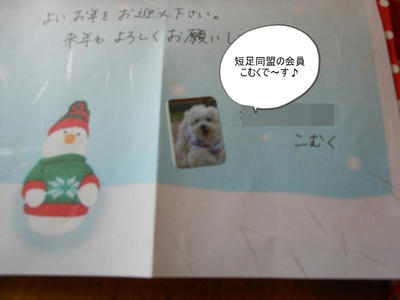 よいお年をお迎え下さい。
来年もよろしくお願いし
短足同盟の会員
こむくで～す♪
こむく